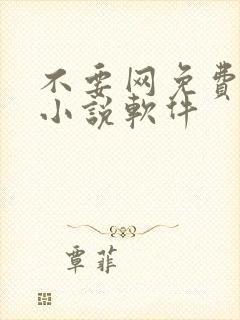 不要网免費
小說軟件
覃菲